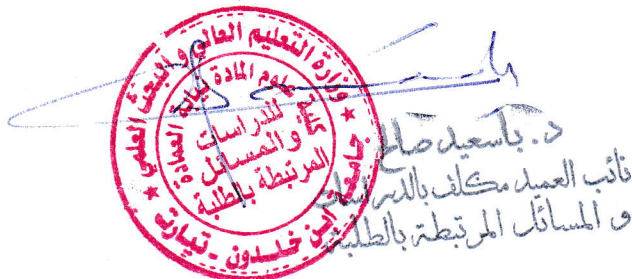 وزارة التعليم العالي و البحث العلمي
جامعة ابن خلدون - تيارت
كلية علوم المادة نيابة العمادة
للدراسات
والمسائل
المرتبطة بالطلبة
د. باسعيد صالح
نائب العميد مكلف بالدراسات
و المسائل المرتبطة بالطلبة